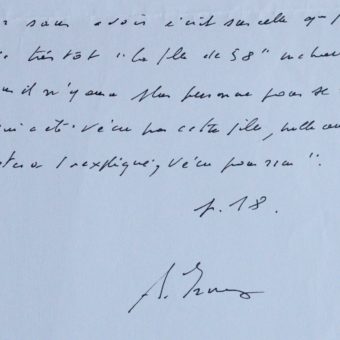 sans avoir écrit sur celle que
très tôt "la fille de 58" me
il n'y aura plus personne pour se
qui a été vécu par cette fille, nulle
inexpliqué, vécu pour rien".
p. 18.
A. Ernaux